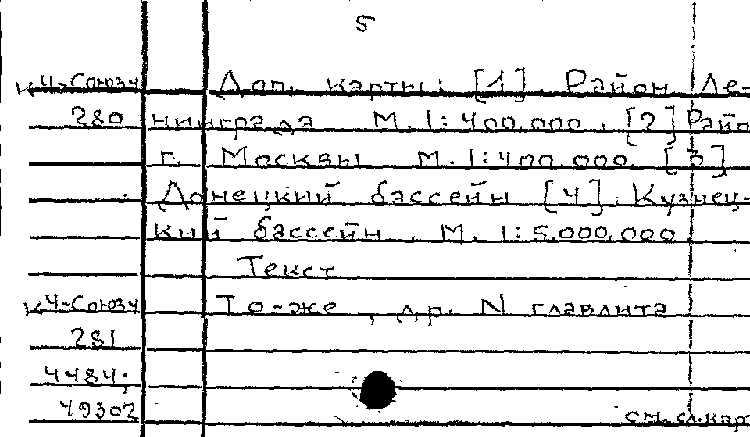 5
К4-Союзу Доп. карты: [1]. Район Ле-
280 нинграда М.1:400.000. [2] Райо
г. Москвы М.1:400.000. [3]
Донецкий бассейн [4]. Кузнец-
кий бассейн. М. 1:5.000.000
Текст
К4-Союзу То-же, др. N главлита
281
4484;
49302 см. сл. кар